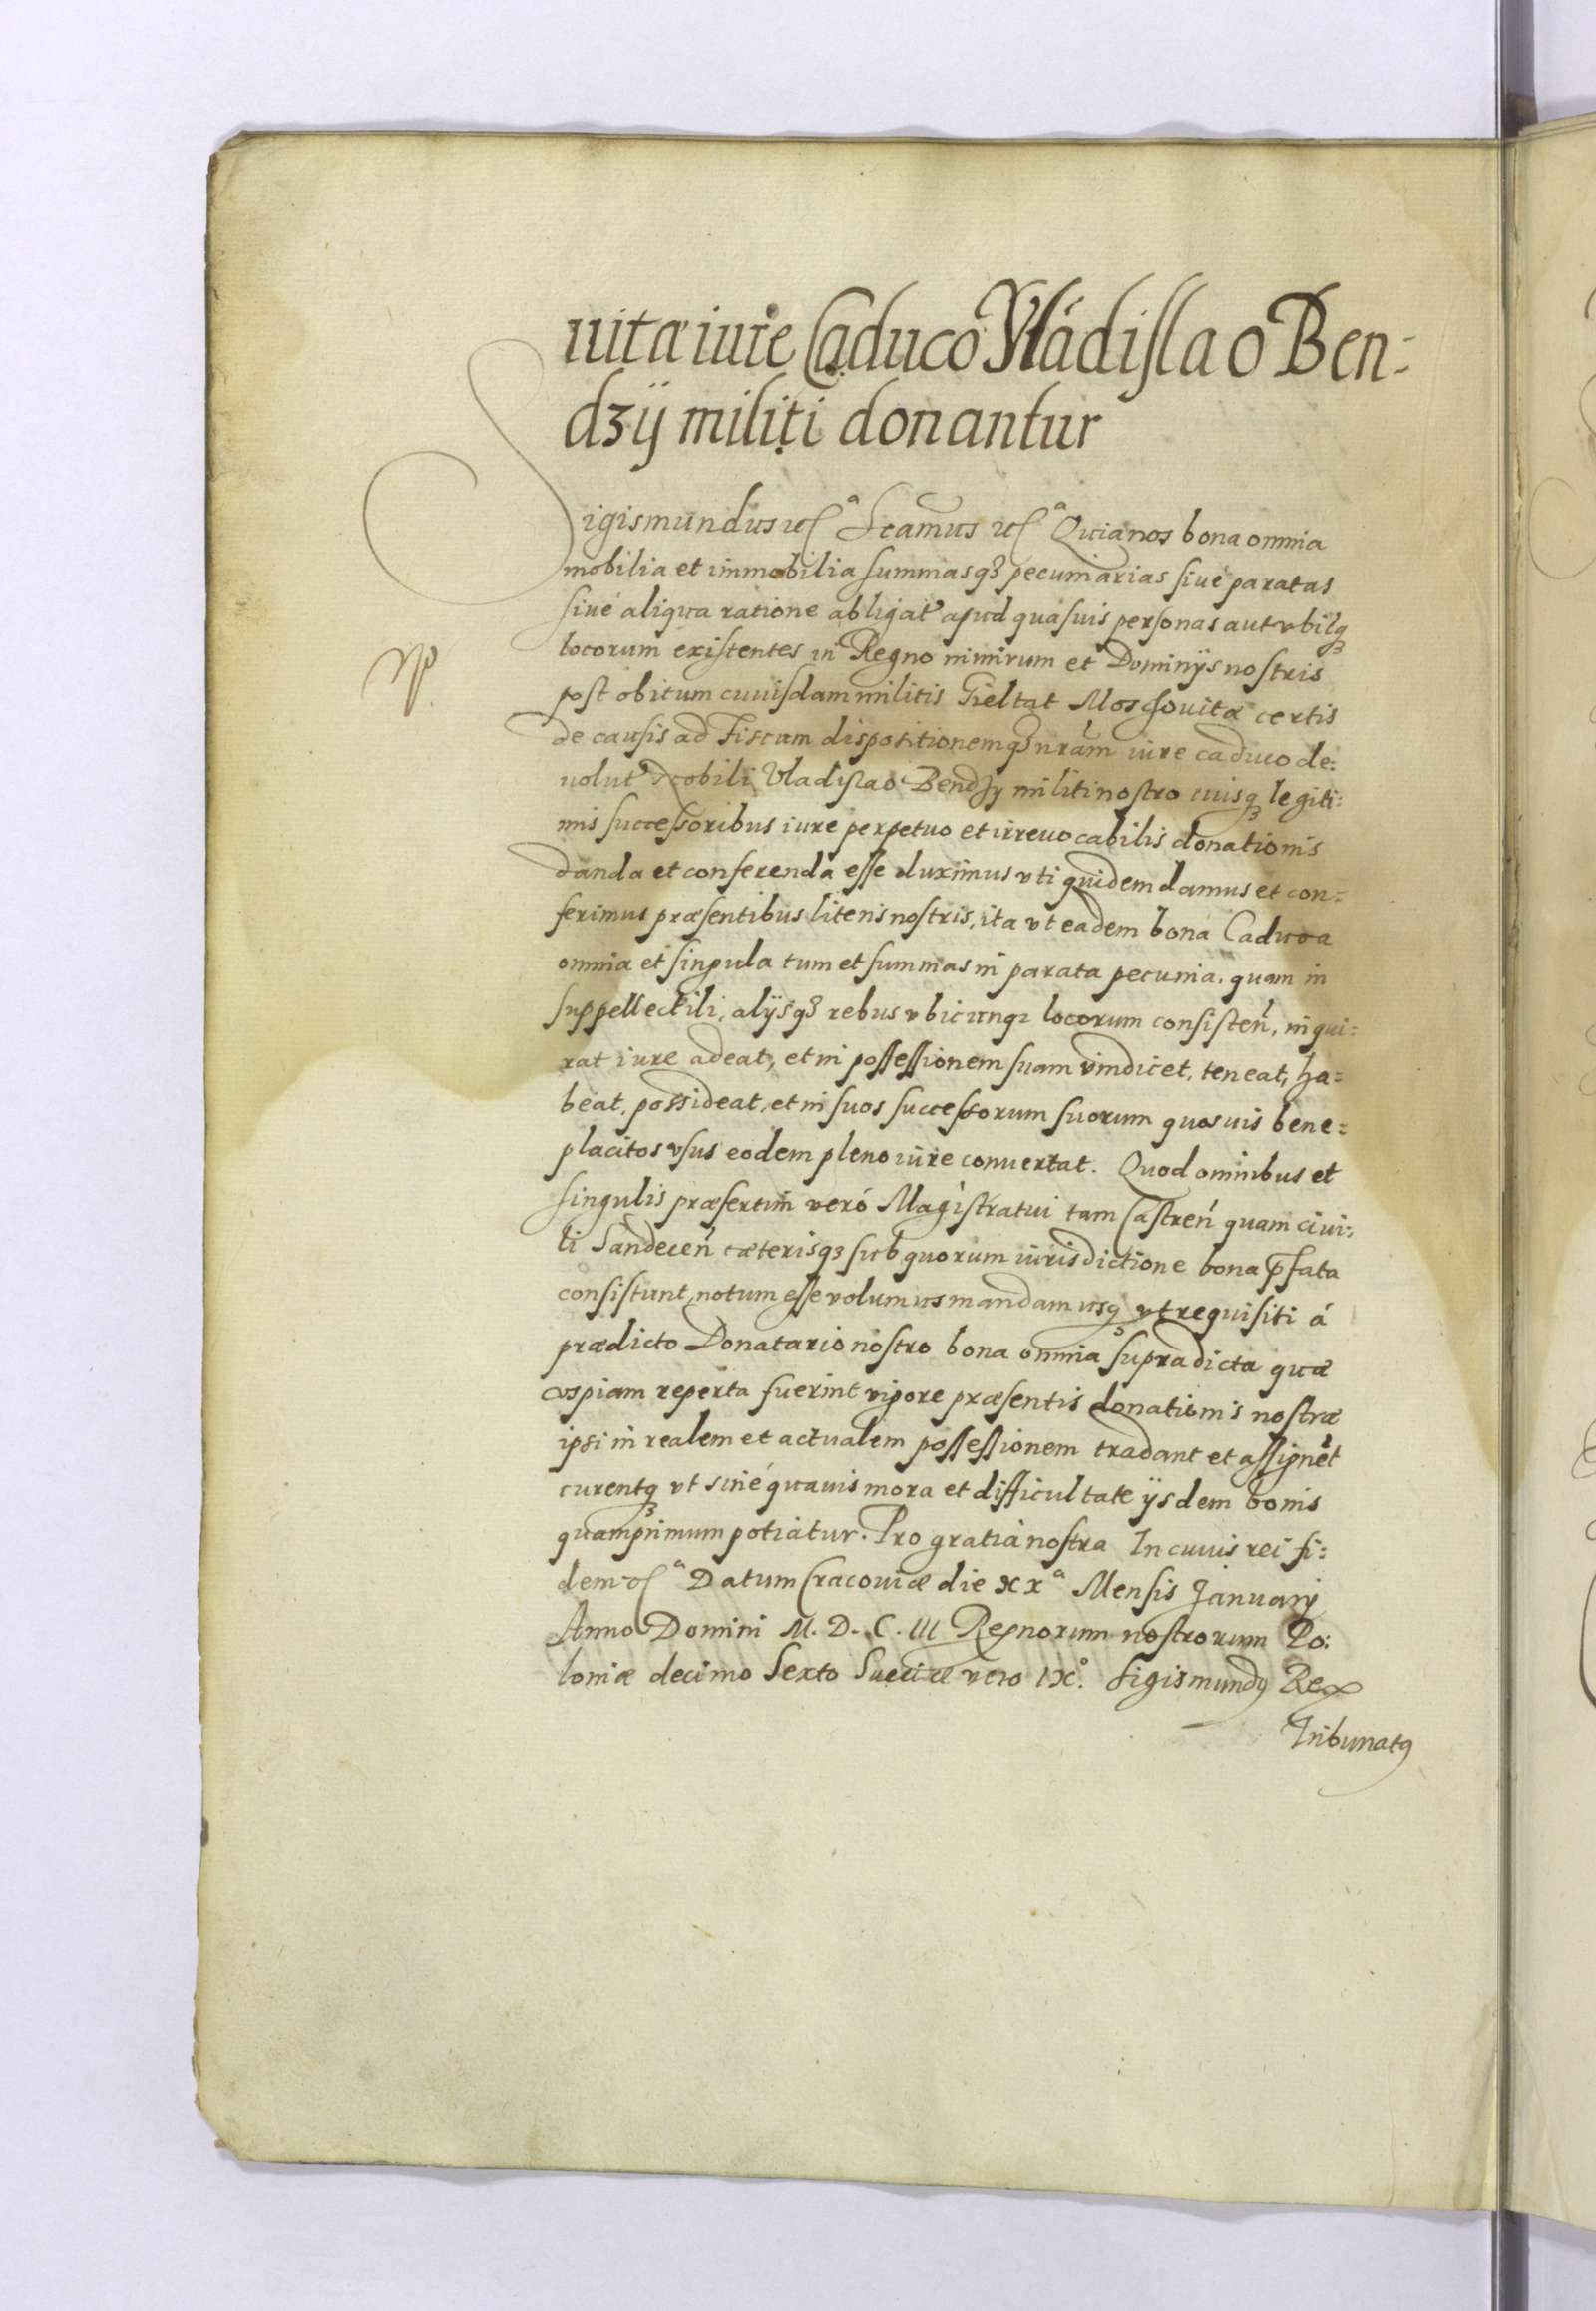 uitæ iure Caduco Vládislao Ben-
dzÿ militi donantur
Sigismundus etc͛ᵃ Scamus etc͛ᵃ Quia nos bona omnia
mobilia et immobilia summasqꝫ pecuniarias siue paratas
siué aliqua ratione abligat͛ apud quasuis personas aut vbilqꝫ
locorum existentes in Regno nimirum et Dominÿs nostris
post obitum cuiusdam militis Gieltat Moschouitæ certis
de causis ad Fiscum dispositionemqꝫ nr̃am iure caduco de:
uolut͛ Nobili Vladislao Bendzÿ militi nostro eiusqꝫ legiti:
mis successoribus iure perpetuo et irreuocabilis donationis
danda et conferenda esse duximus vti quidem damus et con-
ferimus præsentibus literis nostris, ita vt eadem bona Caduca
omnia et singula tum et summas in parata pecunia, quam in
suppellectili, alÿsqꝫ rebus vbicunqꝫ locorum consisten̄, inqui:
rat iure adeat, et in possessionem suam vindicet, teneat, ha=
beat, possideat, et in suos successorum suorum quosuis bene=
placitos vsus eodem pleno iure conuertat. Quod omnibus et
singulis præsertim veró Magistratui tam Castren̄ quam ciui:
li Sandecen̄ cæterisqꝫ sub quorum iurisdictione bona p̃fata
consistunt, notum esse volumus mandamusqꝫ vt requisiti á
prædicto Donatario nostro bona omnia supradicta quæ
uspiam reperta fuerint vigore præsentis donationis nostræ
ipsi in realem et actualem possessionem tradant et assignēt
curentqꝫ vt siné quauis mora et difficultate ÿsdem bonis
quamprimum potiatur. Pro gratia nostra In cuius rei fi:
dem etc͛ᵃ Datum Cracouiæ die xxᵃ Mensis Januarÿ
Anno Domini M. D. C. III Regnorum nostrorum Po:
loniæ decimo Sexto Sueciæ vero IXº. Sigismundꝰ Rex
Tribunatꝰ